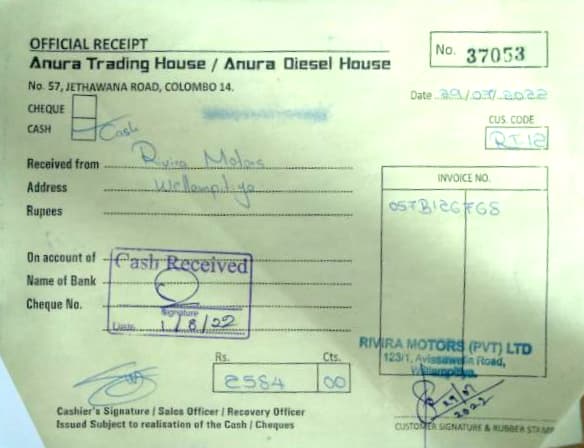 OFFICIAL RECEIPT
No. 37053
Anura Trading House / Anura Diesel House
No. 57, JETHAWANA ROAD, COLOMBO 14.
Date 29/07/2022
CHEQUE
CASH Cash
CUS. CODE
RI12
Received from Rivira Motors
Address Wellampitiya
Rupees
INVOICE NO.
057B126768
On account of
Name of Bank
Cheque No.
Cash Received
Signature
Date 1/8/22
RIVIRA MOTORS (PVT) LTD
123/1, Avissawella Road,
Wellampitiya.
Rs. Cts.
2584 00
29/07
2022
Cashier's Signature / Sales Officer / Recovery Officer
Issued Subject to realisation of the Cash / Cheques
CUSTOMER SIGNATURE & RUBBER STAMP